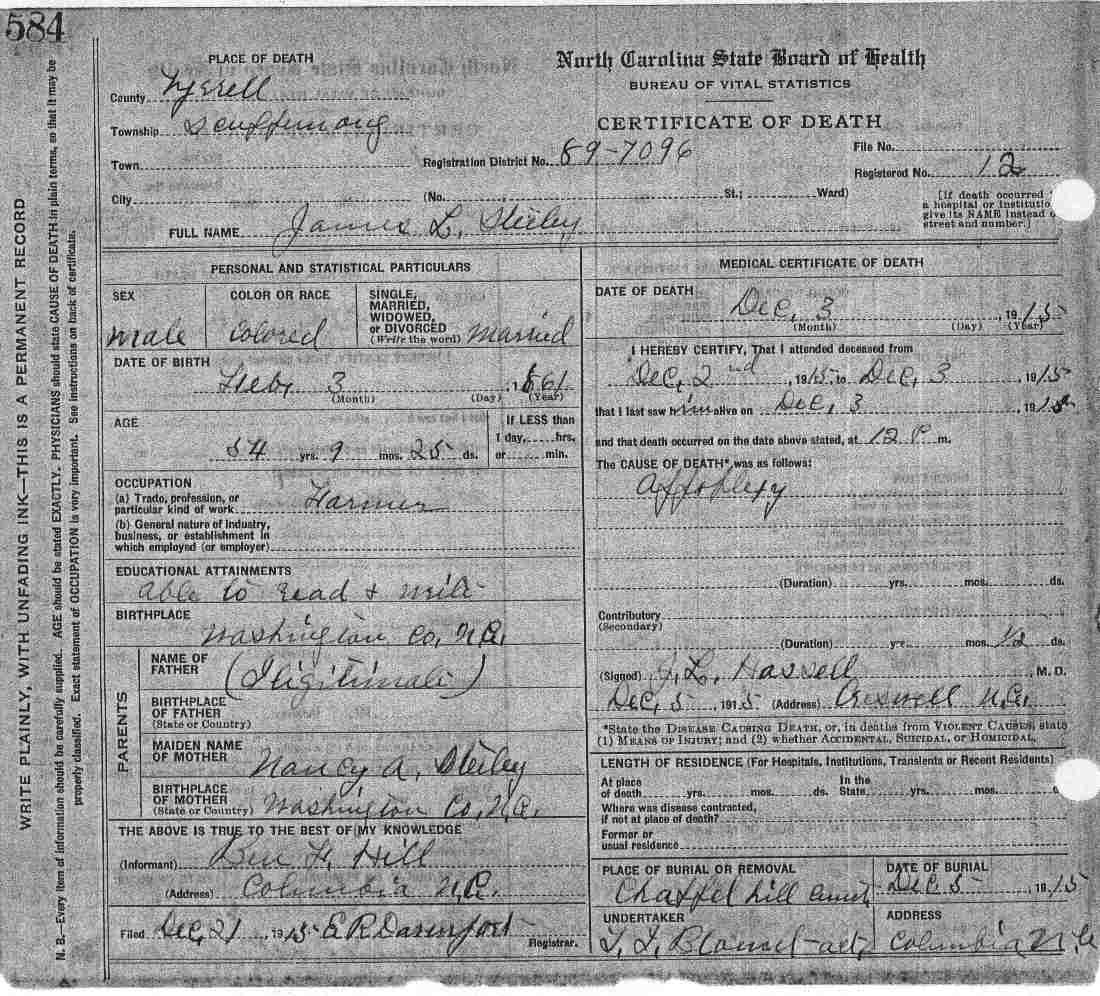 584
WRITE PLAINLY, WITH UNFADING INK—THIS IS A PERMANENT RECORD
N. B.—Every item of information should be carefully supplied. AGE should be stated EXACTLY. PHYSICIANS should state CAUSE OF DEATH in plain terms, so that it may be
properly classified. Exact statement of OCCUPATION is very important. See instructions on back of certificate.
PLACE OF DEATH
County Tyrrell
Township Scuppernong
Town
City
North Carolina State Board of Health
BUREAU OF VITAL STATISTICS
CERTIFICATE OF DEATH
Registration District No. 89-7096
File No.
Registered No. 12
(No. St.; Ward)
[If death occurred
a hospital or institutio
give its NAME instead o
street and number.]
FULL NAME James L. Steeley
PERSONAL AND STATISTICAL PARTICULARS
SEX
male
COLOR OR RACE
Colored
SINGLE,
MARRIED,
WIDOWED,
or DIVORCED
(Write the word) Married
DATE OF BIRTH
Feby 3, 1861
(Month) (Day) (Year)
AGE
54 yrs. 9 mos. 25 ds.
If LESS than
1 day, hrs.
or min.
OCCUPATION
(a) Trade, profession, or
particular kind of work Farmer
(b) General nature of industry,
business, or establishment in
which employed (or employer)
EDUCATIONAL ATTAINMENTS
able to read & write
BIRTHPLACE
Washington Co, N.C.
PARENTS
NAME OF
FATHER (Iligitimate)
BIRTHPLACE
OF FATHER
(State or Country)
MAIDEN NAME
OF MOTHER Nancy A. Steeley
BIRTHPLACE
OF MOTHER
(State or Country) Washington Co, N.C.
THE ABOVE IS TRUE TO THE BEST OF MY KNOWLEDGE
(Informant) Ben F. Hill
(Address) Columbia N.C.
Filed Dec, 21 1915 E R Davenport
Registrar.
MEDICAL CERTIFICATE OF DEATH
DATE OF DEATH
Dec, 3, 1915
(Month) (Day) (Year)
I HEREBY CERTIFY, That I attended deceased from
Dec, 2nd, 1915 to Dec, 3 1915
that I last saw him alive on Dec, 3 1915
and that death occurred on the date above stated, at 12 P m.
The CAUSE OF DEATH* was as follows:
Appoplexy
(Duration) yrs. mos. ds.
Contributory
(Secondary)
(Duration) yrs. mos. 1/2 ds.
(Signed) J. L. Hassell M. D.
Dec, 5 1915 (Address) Creswell N.C.
*State the DISEASE CAUSING DEATH, or, in deaths from VIOLENT CAUSES, state
(1) MEANS OF INJURY; and (2) whether ACCIDENTAL, SUICIDAL, or HOMICIDAL.
LENGTH OF RESIDENCE (For Hospitals, Institutions, Transients or Recent Residents)
At place
of death yrs. mos. ds.
In the
State, yrs. mos.
Where was disease contracted,
if not at place of death?
Former or
usual residence
PLACE OF BURIAL OR REMOVAL
Chappel hill
DATE OF BURIAL
Dec 5, 1915
UNDERTAKER
Blount
ADDRESS
Columbia N.C